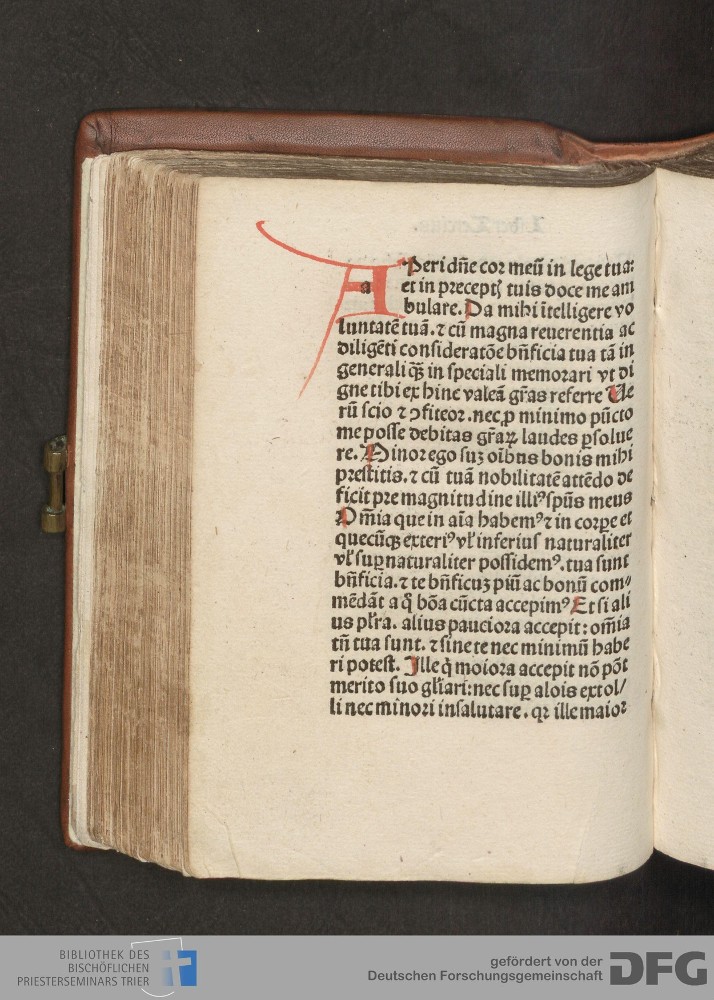 Aperi dn̄e cor meū in lege tua:
et in preceptꝭ tuis doce me am
bulare. Da mihi ītelligere vo
luntatē tuā. ⁊ cū magna reuerentia ac
diligēti consideratōe bn̄ficia tua tā in
generali qꝫ in speciali memorari vt di
gne tibi ex hinc valeā gr̄as referre Ue
rū scio ⁊ ↄfiteor. nec ꝓ minimo pūcto
me posse debitas gr̄aꝝ laudes ꝑsolue
re. Minor ego suꝫ oībus bonis mihi
prestitis. ⁊ cū tuā nobilitatē attēdo de
ficit pre magnitudine illiꝰ spūs meus
Om̄ia que in aīa habemꝰ ⁊ in corꝑe et
quecūqꝫ exteriꝰ vl̄ inferius naturaliter
vl̄ suꝑnaturaliter possidemꝰ. tua sunt
bn̄ficia. ⁊ te bn̄ficuꝫ piū ac bonū com⸗
mēdāt a q̄ bōa cūcta accepimꝰ Et si ali
us pl̄ra. alius pauciora accepit: om̄ia
tn̄ tua sunt. ⁊ sine te nec minimū habe
ri potest. Ille q̄ moiora accepit nō pōt
merito suo gl̄iari: nec suꝑ alois extol/
li nec minori insalutare. qꝛ ille maior
BIBLIOTHEK DES
BISCHÖFLICHEN
PRIESTERSEMINARS TRIER
gefördert von der
Deutschen Forschungsgemeinschaft
DFG